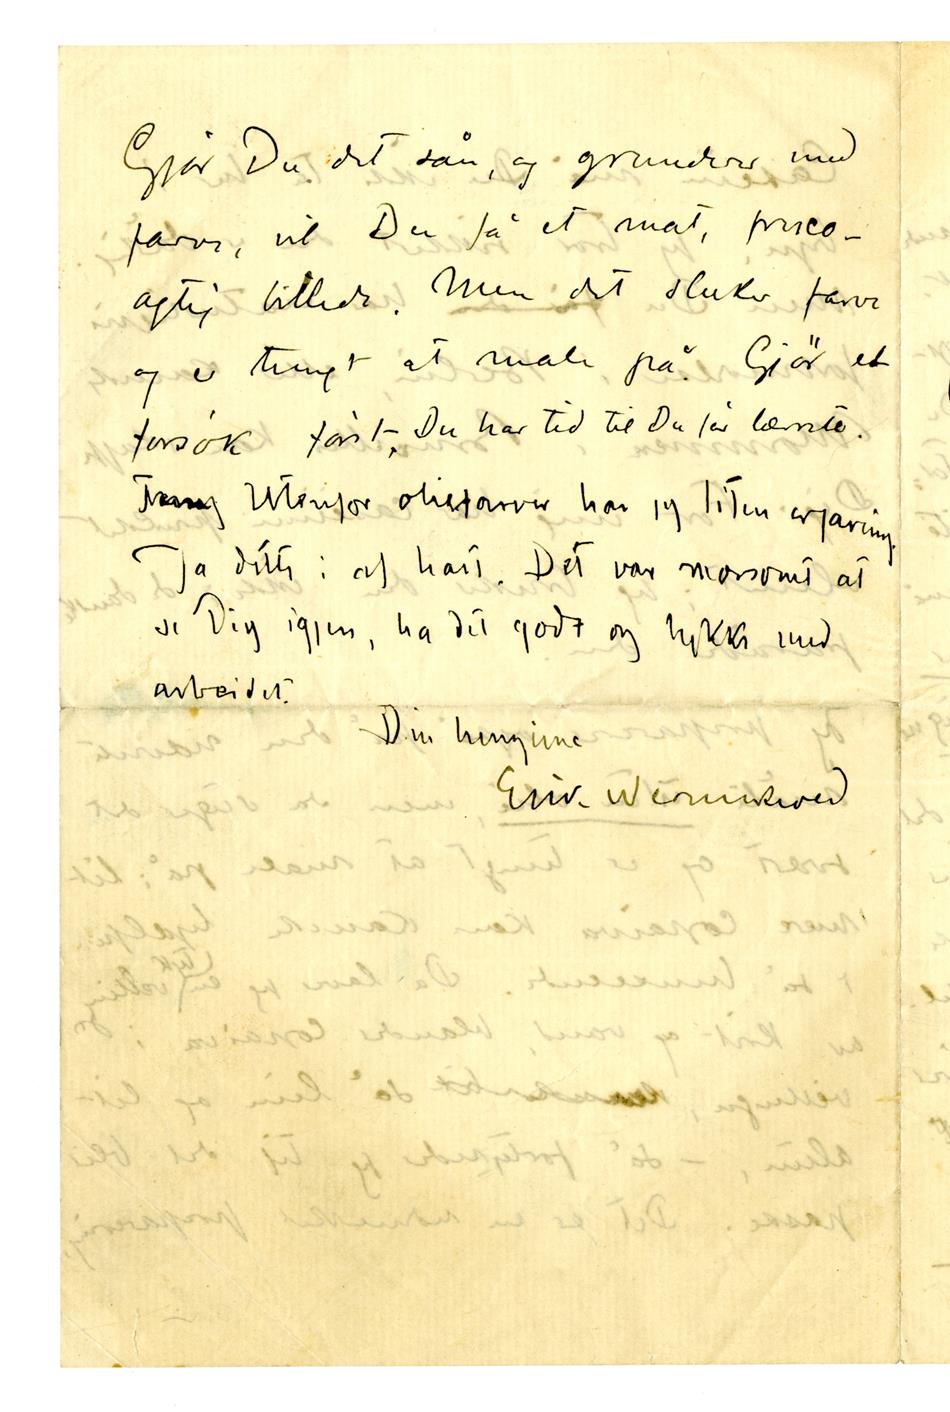 Gjør Du det sån, og grunderer med
farve, vil Du få et mat, fresco-
agtig billede. Men det sluker farve
og er tungt at male på. Gjør et
forsøk først, Du har tid til Du får lærrete.
Utenfor oliefarver har jeg liten erfaring.
Ja dette i al hast. Det var morsomt at
se Dig igjen, ha det godt og lykke med
arbeidet.
Din hengivne
Erik Werenskiold